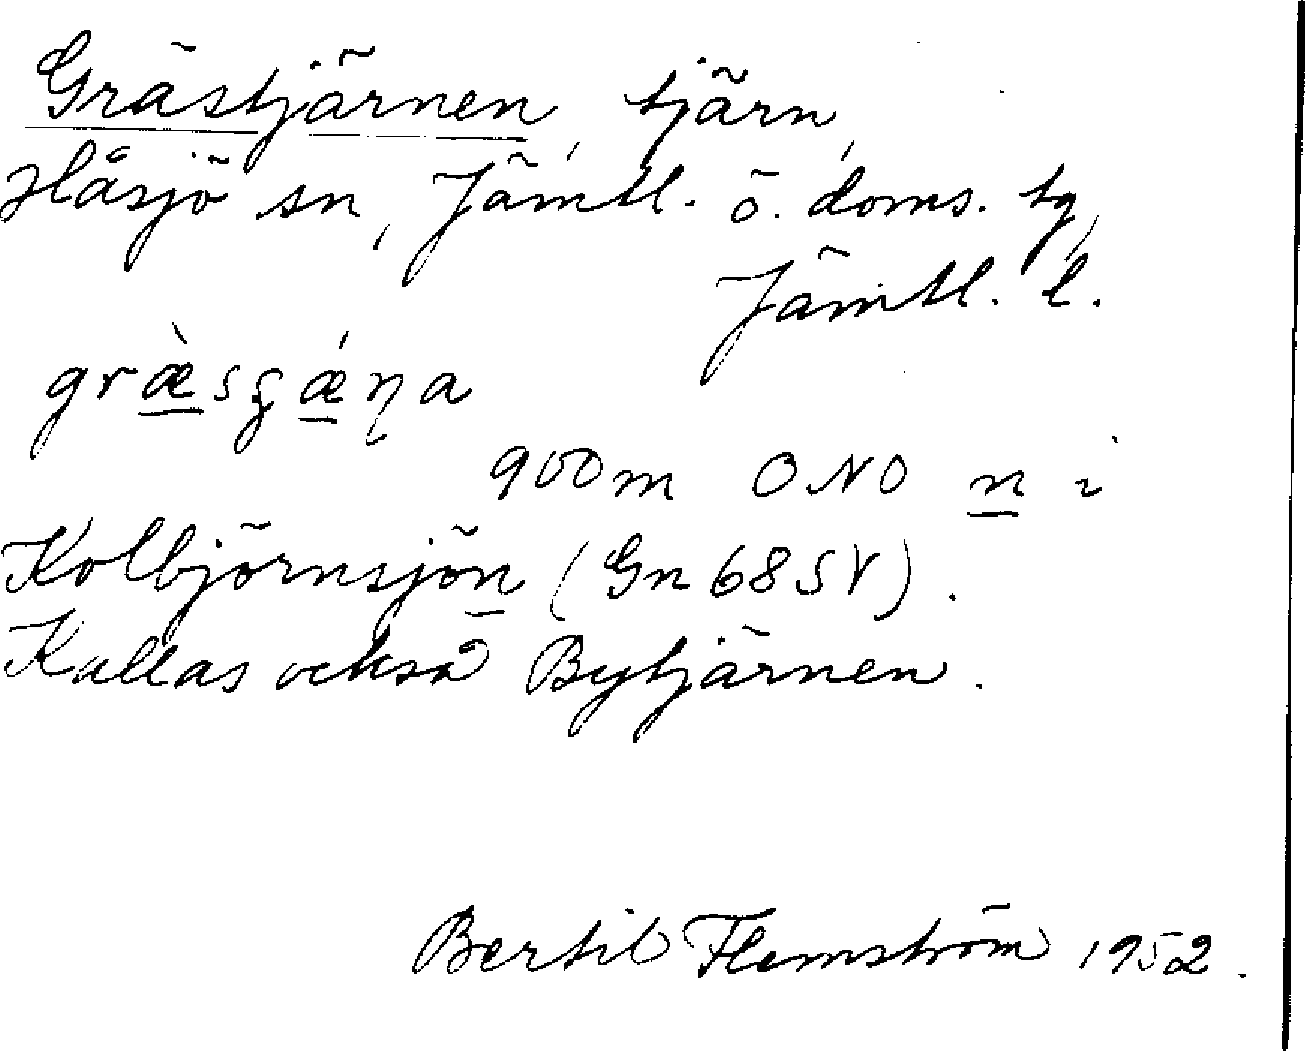 Grästjärnen, tjärn,
Håsjö sn, Jämtl. ö. doms. tg,
Jämtl. l.
græ̀sʒǽŋa
900 m ONO n i
Kolbjörnsjön (Gn 68 SV).
Kallas också Bytjärnen.
Bertil Flemström 1952.